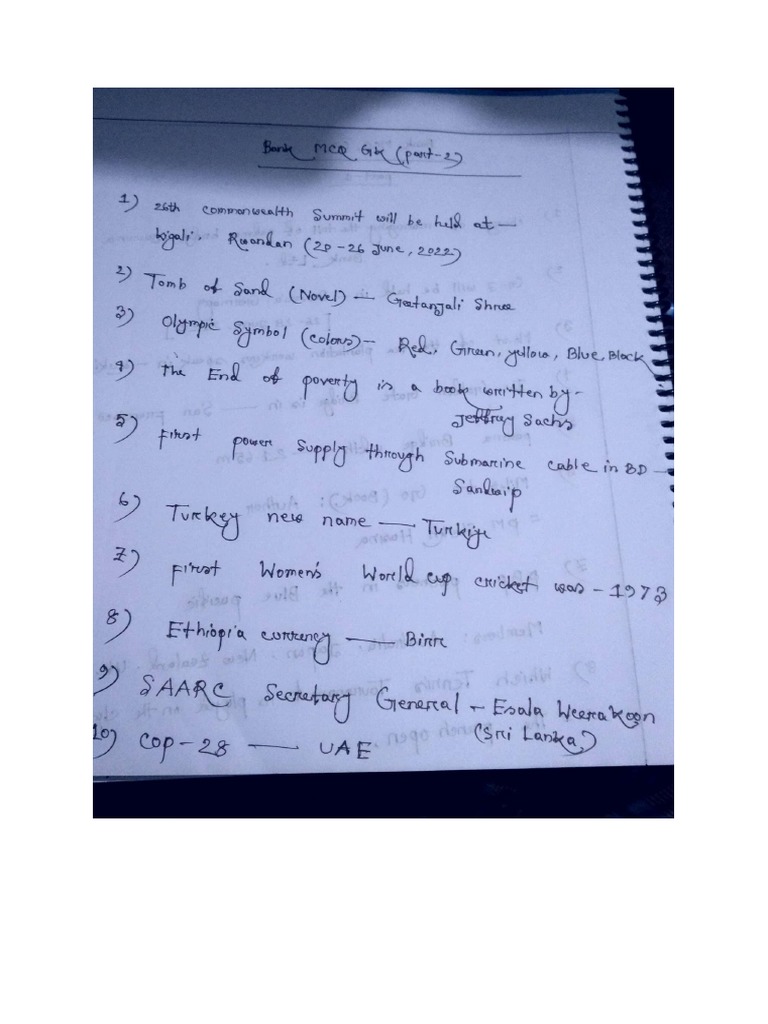 Bank MCQ GK (part-2)
1) 26th commonwealth Summit will be held at —
kigali. Rwandan (20-26 June, 2022)
2) Tomb of Sand (Novel) — Geetanjali Shree
3) Olympic Symbol (colors) - Red, Green, yellow, Blue, Black
4) The End of poverty is a book written by -
Jeffrey Sachs
5) First power Supply through Submarine cable in BD —
Sandwip
6) Turkey new name — Turkiye
7) First Women's World cup cricket was - 1973
8) Ethiopia currency — Birr
9) SAARC Secretary General - Esala Weerakoon
(Sri Lanka)
10) Cop-28 — UAE